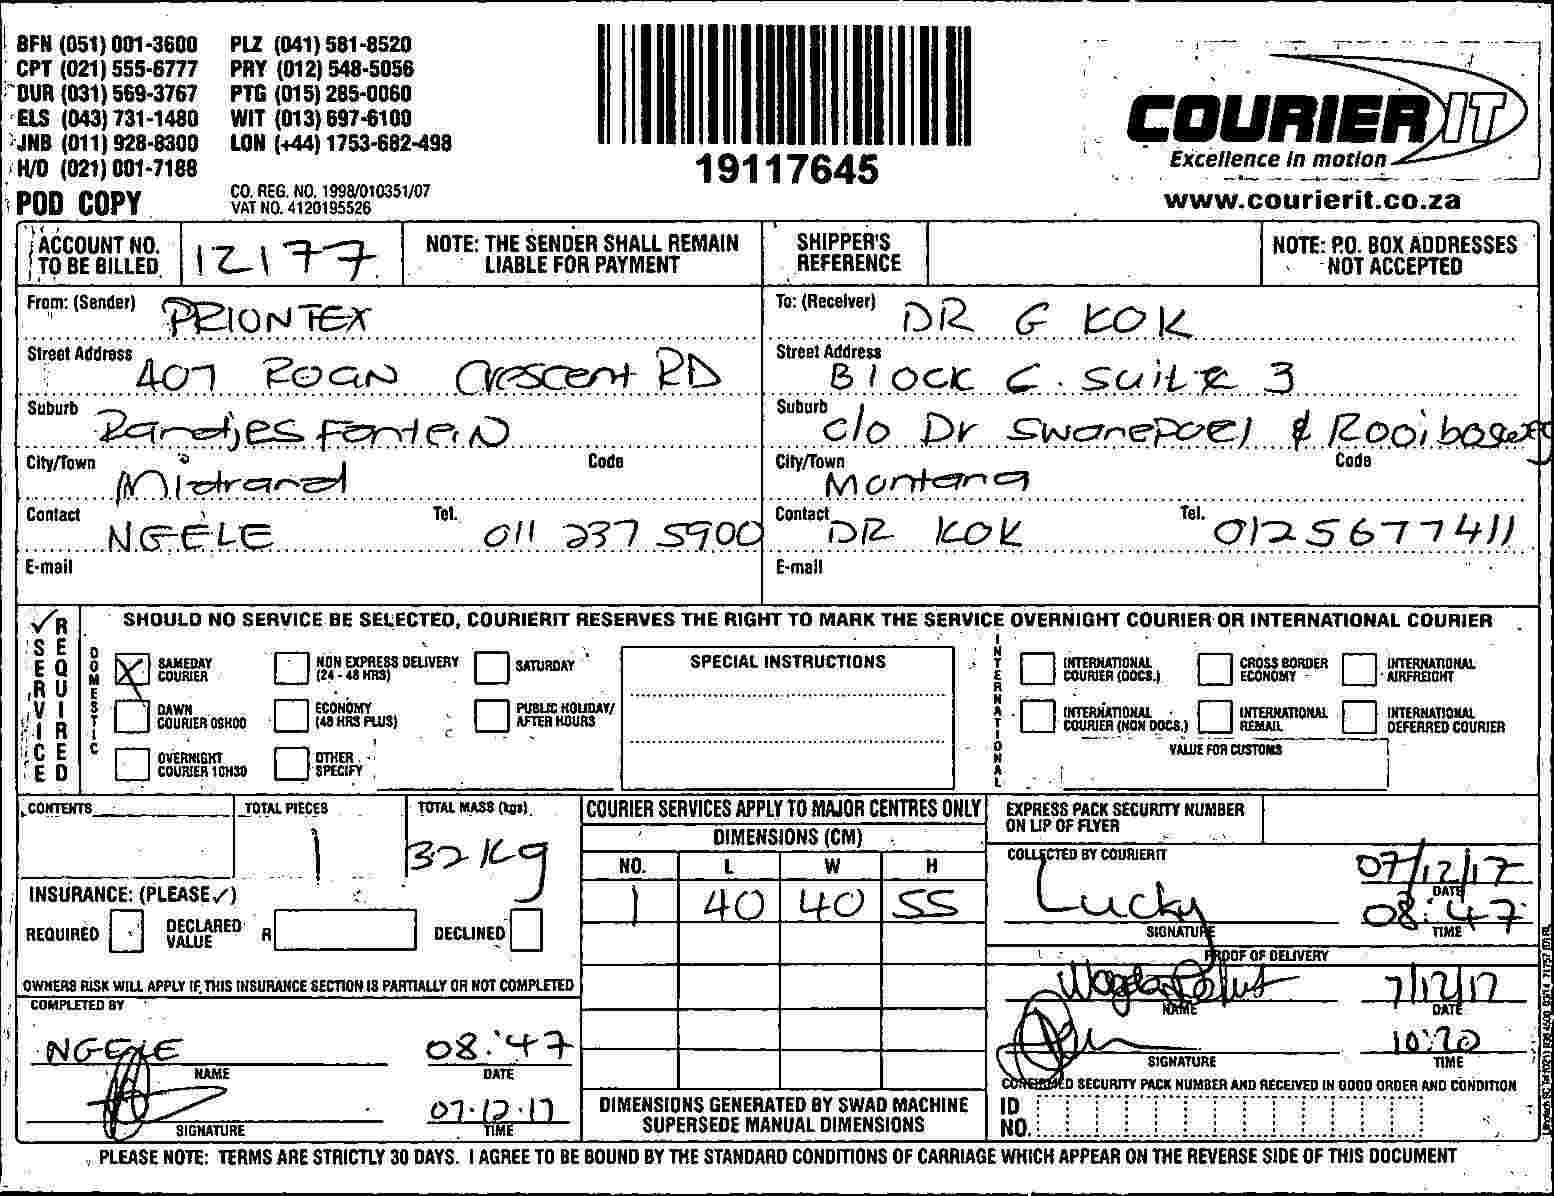 BFN (051) 001-3600 PLZ (041) 581-8520
CPT (021) 555-6777 PRY (012) 548-5056
DUR (031) 569-3767 PTG (015) 285-0060
ELS (043) 731-1480 WIT (013) 697-6100
JNB (011) 928-8300 LON (+44) 1753-682-498
H/O (021) 001-7188
POD COPY
CO. REG. NO. 1998/010351/07
VAT NO. 4120195526
19117645
COURIER IT
Excellence in motion
www.courierit.co.za
ACCOUNT NO. TO BE BILLED 12177
NOTE: THE SENDER SHALL REMAIN LIABLE FOR PAYMENT
SHIPPER'S REFERENCE
NOTE: P.O. BOX ADDRESSES NOT ACCEPTED
From: (Sender) PRIONTEX
Street Address 407 ROAN Crescent RD
Suburb Randjesfontein
City/Town Midrand Code
Contact NGELE Tel. 011 237 5900
E-mail
To: (Receiver) DR G KOK
Street Address BLOCK C. SUITE 3
Suburb c/o Dr Swanepoel & Rooibos
City/Town Montana Code
Contact DR KOK Tel. 0125677411
E-mail
✓ SERVICE REQUIRED
SHOULD NO SERVICE BE SELECTED, COURIERIT RESERVES THE RIGHT TO MARK THE SERVICE OVERNIGHT COURIER OR INTERNATIONAL COURIER
DOMESTIC
X SAMEDAY COURIER
NON EXPRESS DELIVERY (24 - 48 HRS)
SATURDAY
DAWN COURIER 09H00
ECONOMY (48 HRS PLUS)
PUBLIC HOLIDAY/ AFTER HOURS
OVERNIGHT COURIER 10H30
OTHER SPECIFY
SPECIAL INSTRUCTIONS
INTERNATIONAL
INTERNATIONAL COURIER (DOCS.)
CROSS BORDER ECONOMY
INTERNATIONAL AIRFREIGHT
INTERNATIONAL COURIER (NON DOCS.)
INTERNATIONAL REMAIL
INTERNATIONAL DEFERRED COURIER
VALUE FOR CUSTOMS
CONTENTS
TOTAL PIECES 1
TOTAL MASS (kgs) 32 Kg
INSURANCE: (PLEASE ✓)
REQUIRED DECLARED VALUE R DECLINED
OWNERS RISK WILL APPLY IF THIS INSURANCE SECTION IS PARTIALLY OR NOT COMPLETED
COMPLETED BY
NGELE 08:47
NAME DATE
07.12.17
SIGNATURE TIME
COURIER SERVICES APPLY TO MAJOR CENTRES ONLY
DIMENSIONS (CM)
NO. L W H
1 40 40 55
DIMENSIONS GENERATED BY SWAD MACHINE
SUPERSEDE MANUAL DIMENSIONS
EXPRESS PACK SECURITY NUMBER ON LIP OF FLYER
COLLECTED BY COURIERIT
Lucky 07/12/17
DATE
08:47
SIGNATURE TIME
PROOF OF DELIVERY
7/12/17
NAME DATE
10:20
SIGNATURE TIME
CONFIRMED SECURITY PACK NUMBER AND RECEIVED IN GOOD ORDER AND CONDITION
ID NO.
PLEASE NOTE: TERMS ARE STRICTLY 30 DAYS. I AGREE TO BE BOUND BY THE STANDARD CONDITIONS OF CARRIAGE WHICH APPEAR ON THE REVERSE SIDE OF THIS DOCUMENT